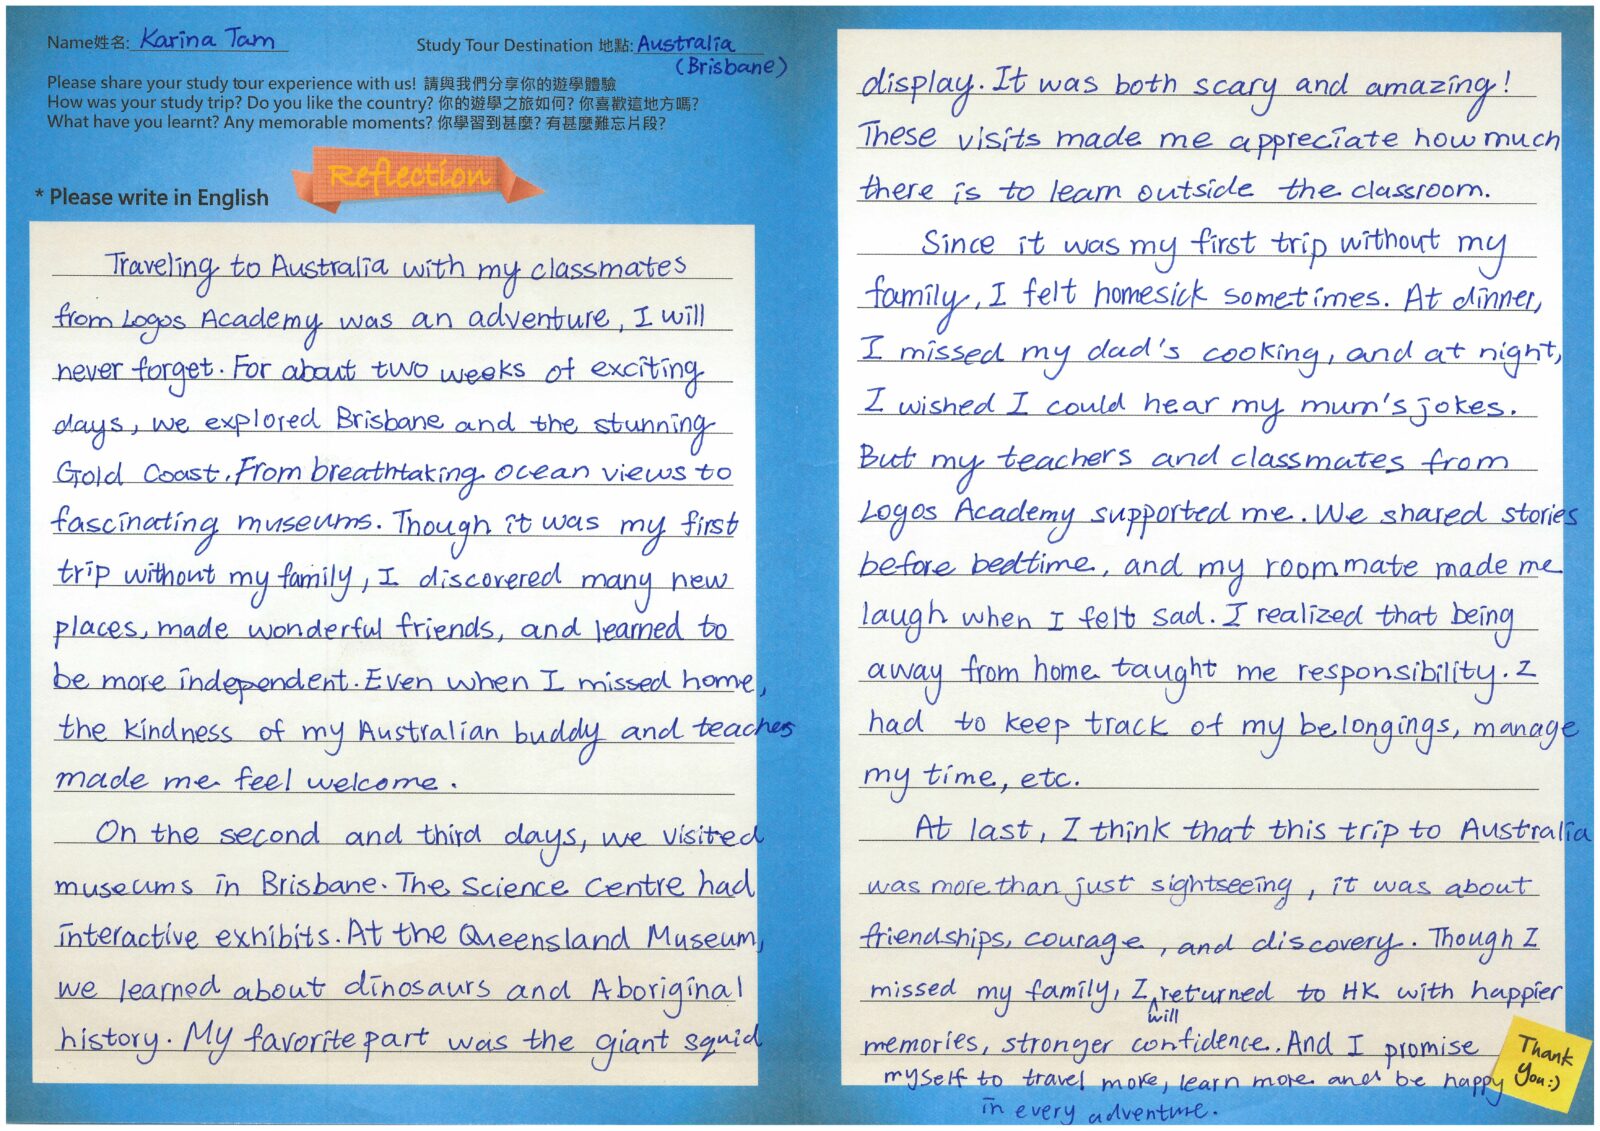 Name姓名: Karina Tam
Study Tour Destination 地點: Australia
(Brisbane)
Please share your study tour experience with us! 請與我們分享你的遊學體驗
How was your study trip? Do you like the country? 你的遊學之旅如何? 你喜歡這地方嗎?
What have you learnt? Any memorable moments? 你學習到甚麼? 有甚麼難忘片段?
Reflection
* Please write in English
Traveling to Australia with my classmates
from Logos Academy was an adventure, I will
never forget. For about two weeks of exciting
days, we explored Brisbane and the stunning
Gold Coast. From breathtaking ocean views to
fascinating museums. Though it was my first
trip without my family, I discovered many new
places, made wonderful friends, and learned to
be more independent. Even when I missed home,
the kindness of my Australian buddy and teaches
made me feel welcome.
On the second and third days, we visited
museums in Brisbane. The Science Centre had
interactive exhibits. At the Queensland Museum,
we learned about dinosaurs and Aboriginal
history. My favorite part was the giant squid
display. It was both scary and amazing!
These visits made me appreciate how much
there is to learn outside the classroom.
Since it was my first trip without my
family, I felt homesick sometimes. At dinner,
I missed my dad's cooking, and at night,
I wished I could hear my mum's jokes.
But my teachers and classmates from
Logos Academy supported me. We shared stories
before bedtime, and my roommate made me
laugh when I felt sad. I realized that being
away from home taught me responsibility. I
had to keep track of my belongings, manage
my time, etc.
At last, I think that this trip to Australia
was more than just sightseeing, it was about
friendships, courage, and discovery. Though I
missed my family, I will returned to HK with happier
memories, stronger confidence. And I promise
myself to travel more, learn more and be happy
in every adventure.
Thank
You:)